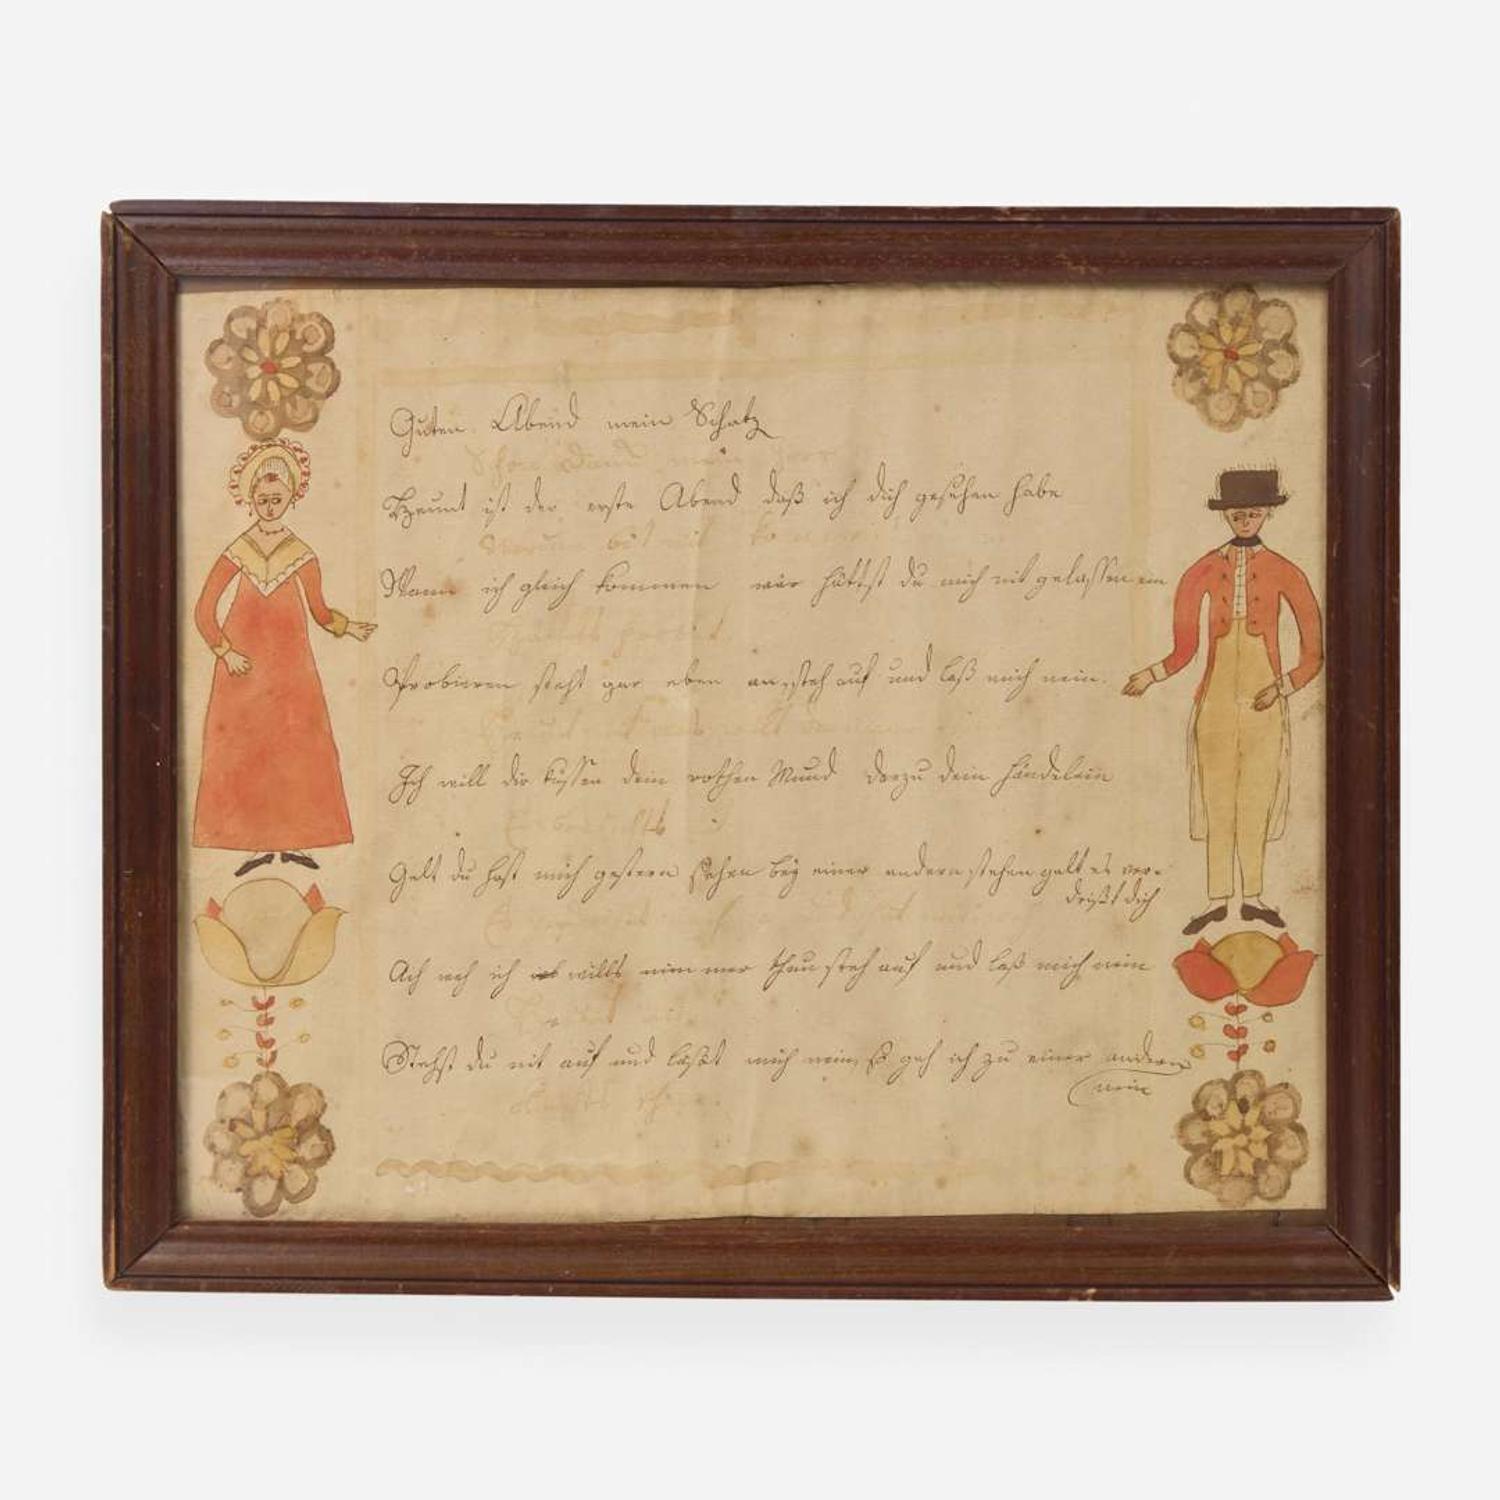 Guten Abend mein Schatz
Schön Dank mein Herr
Heunt ist der erste Abend daß ich dich gesehen habe
Warum bist nit kommen
Wann ich gleich kommen wär hättst du mich nit gelassen ein
Hättst probirt
Probieren steht gar eben an, steh auf und laß mich nein.
Heunt
Ich will dir küssen dein rothen Mund darzu dein händelein
Gelt du hast mich gestern sehen bey einer andern stehen gelt es ver-
drißt dich
Ach weh ich wills nim mer thun steh auf und laß mich nein
Stehst du nit auf und laßst mich nein, So geh ich zu einer andern
nein